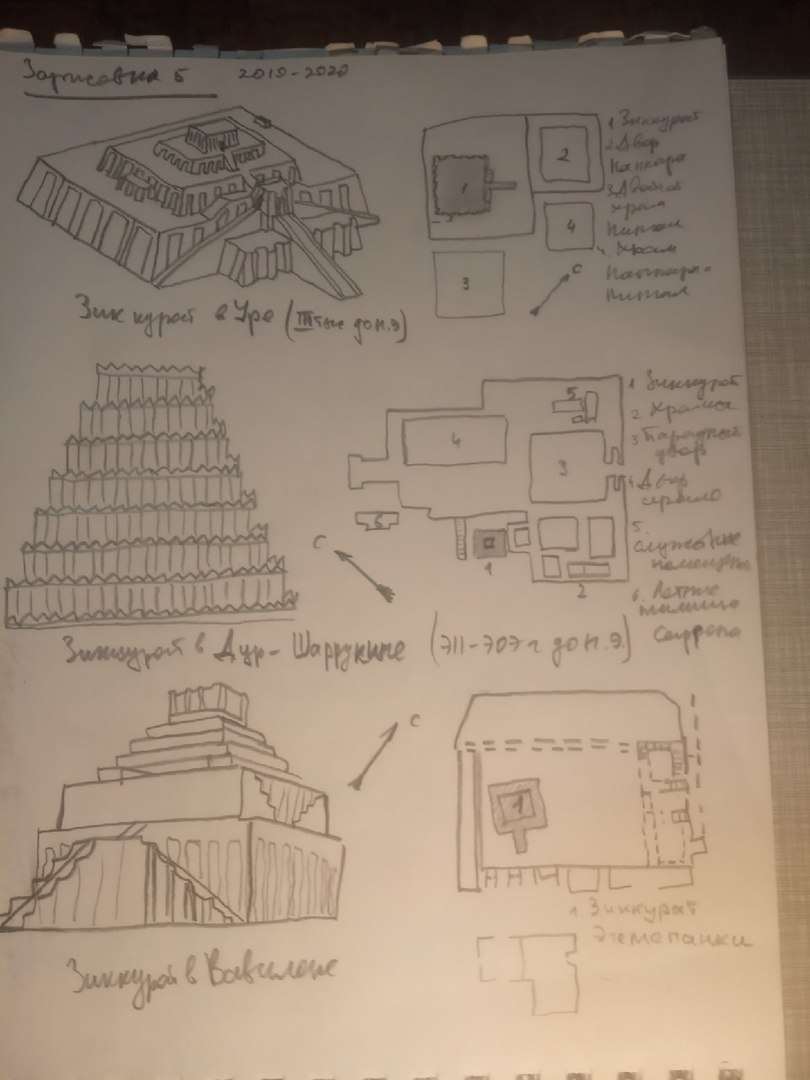 Зарисовка 5 2019-2020
1 Зиккурат
2 Двор
Наннара
3 
храм
4. Храм
1
2
3
4
С
Зиккурат в Уре (III тыс до н.э)
1 Зиккурат
2 Храмы
3 Парадный
двор
4 Двор
5
служебные
6.
жилище
Саргона
1
2
3
4
5
6
С
Зиккурат в Дур-Шаррукине (711-707 г до н.э.)
С
1
1. Зиккурат
Этеменанки
Зиккурат в Вавилоне